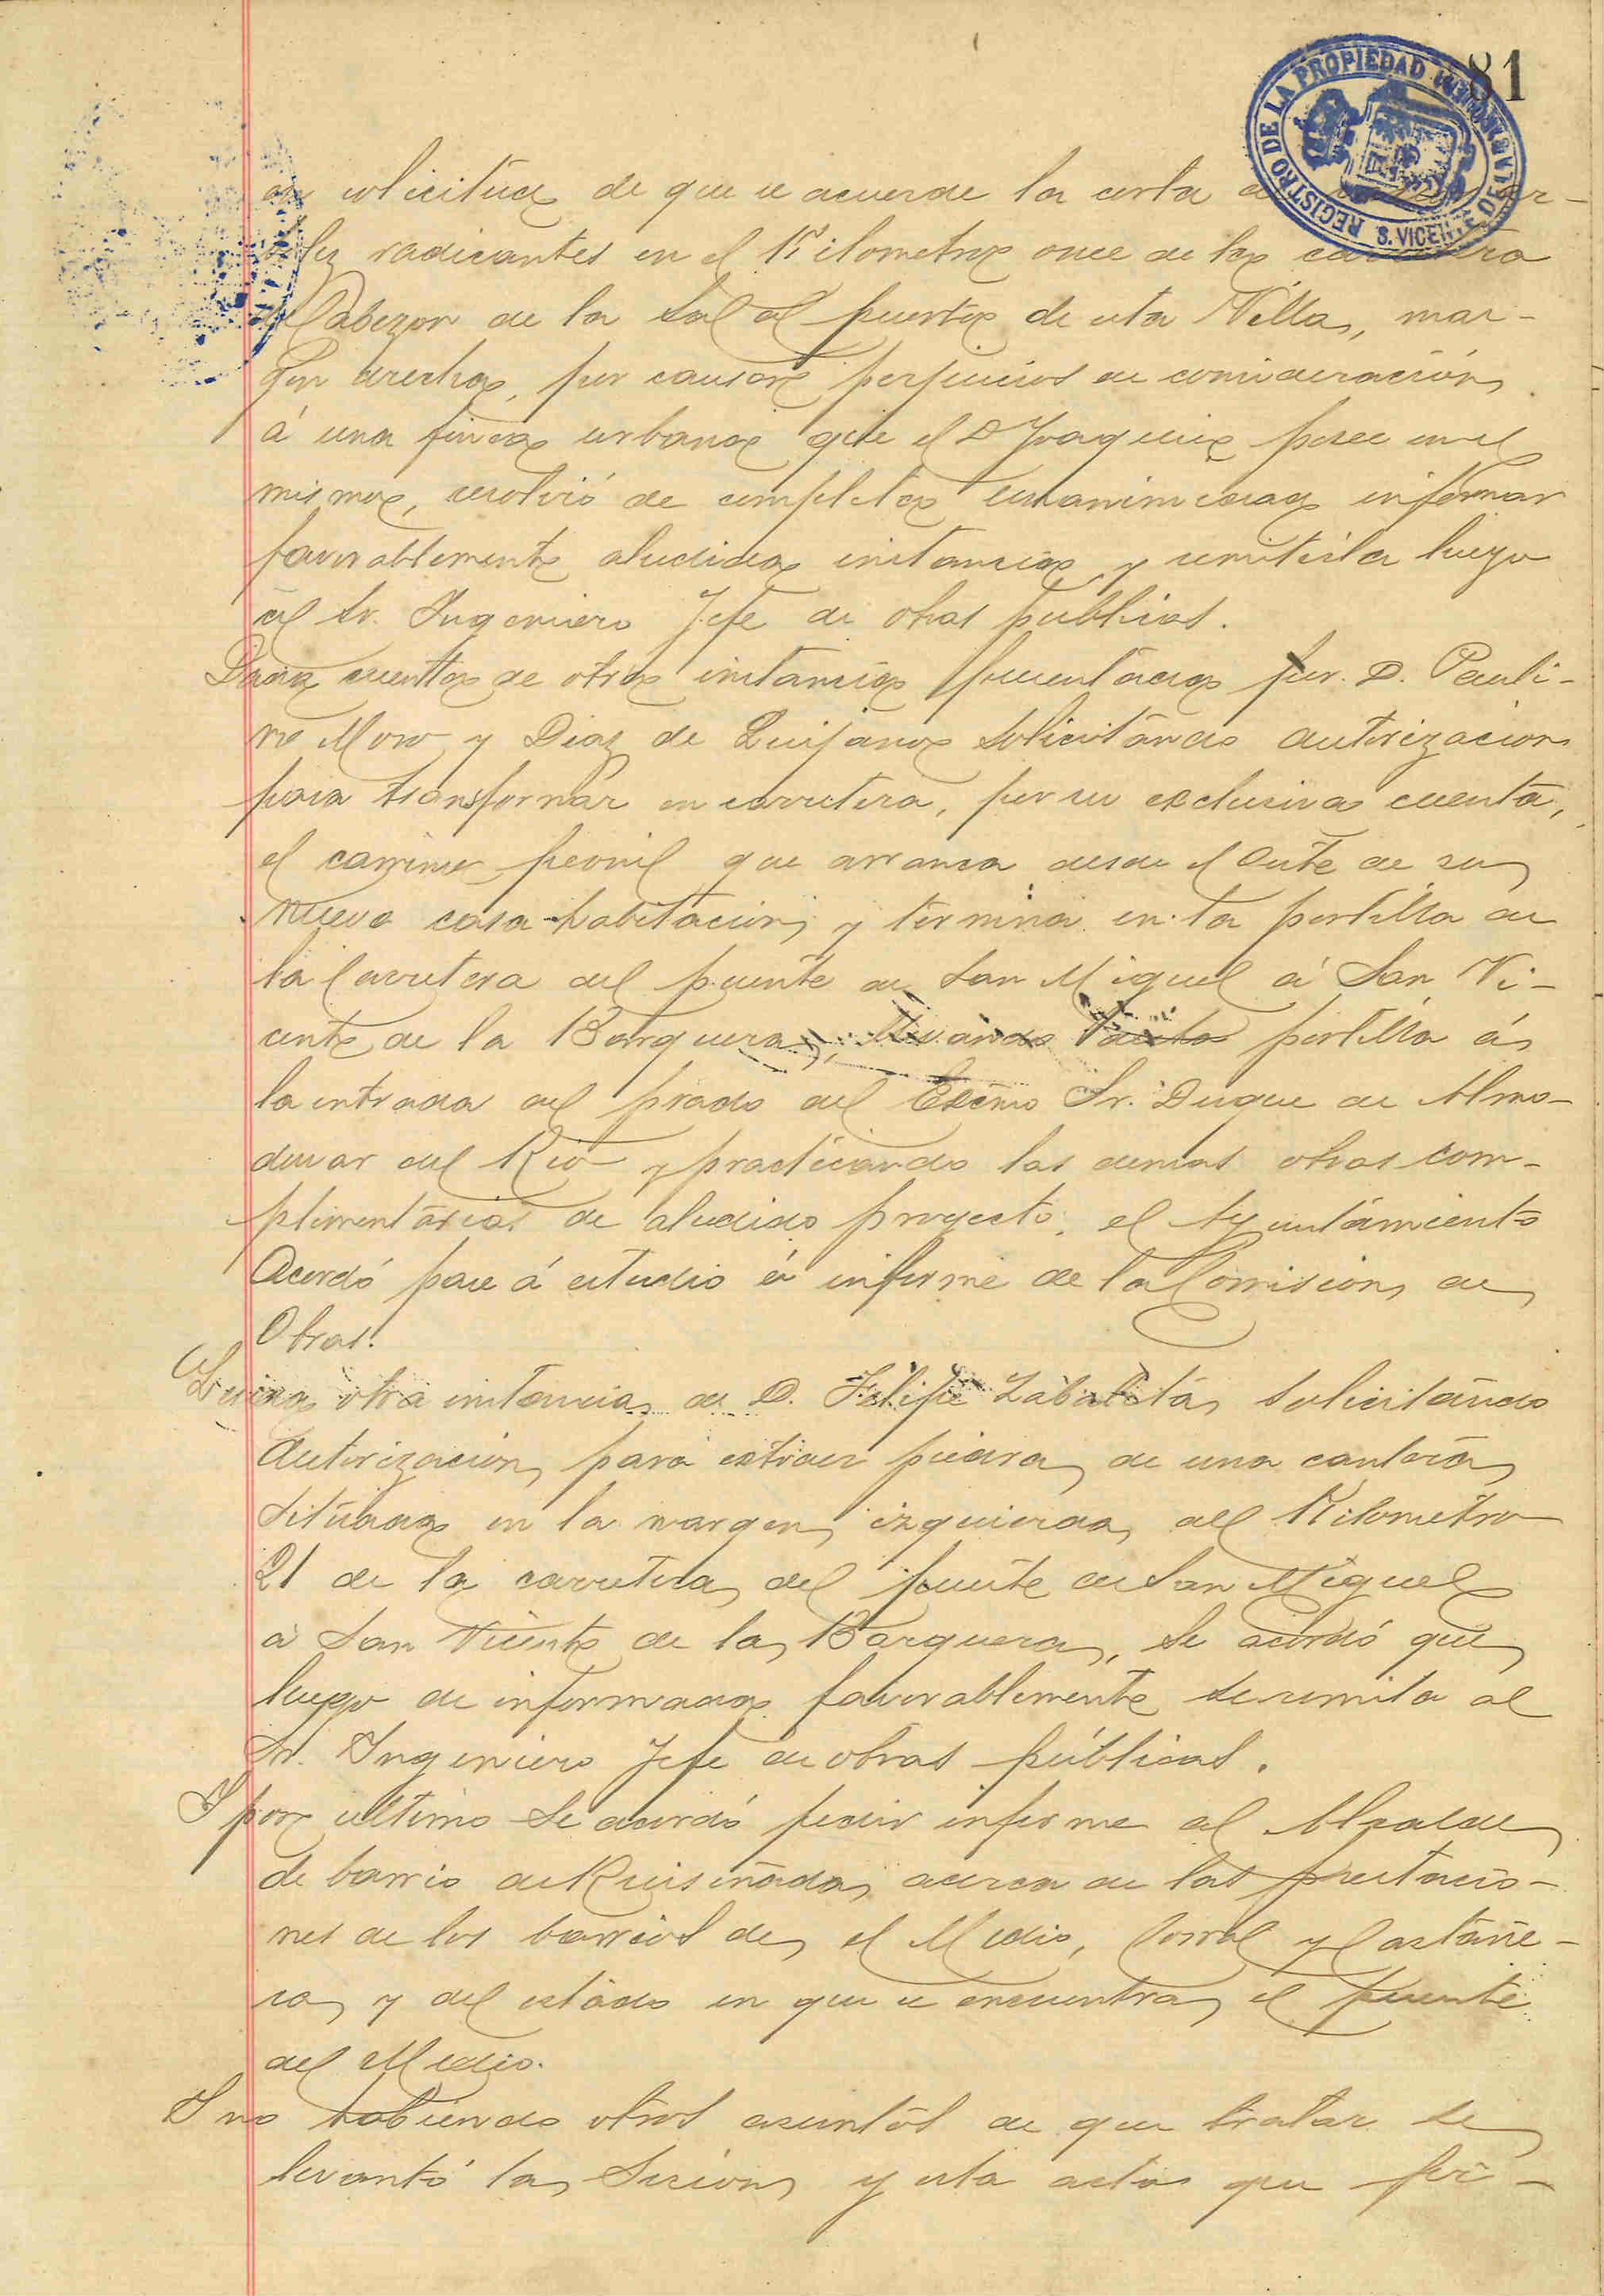 81
REGISTRO DE LA PROPIEDAD
S. VICENTE DE LA BARQUERA
en solicitud de que se acuerde la corta de
radicantes en el Kilometro once de la carretera
de Cabezon de la Sal al puerto de esta Villa, mar-
gen derecha, por causar perjuicios de consideración
á una finca urbana que el D Joaquin posee en el
mismo, resolvió de completa unanimidad informar
favorablemente aludida instancia y remitirla luego
al Sr. Ingeniero Jefe de obras publicas.
Dada cuenta de otra instancia presentada por D. Pauli-
no Moro y Diaz de Quijano solicitando autorizacion
para transformar en carretera, por su exclusiva cuenta,
el camino peonil que arranca desde el Oeste de su
nueva casa-habitacion y termina en la portilla de
la Carretera del puente de San Miguel á San Vi-
cente de la Barquera, llevando portilla á
la entrada del prado del Excmo Sr. Duque de Almo-
dovar del Rio y practicando las demas obras com-
plimentarias de aludido proyecto, el Ayuntamiento
Acordó pase á estudio é informe de la Comision de
Obras.
Leida otra instancia de D. Felipe Zabaleta solicitando
Autorizacion para extraer piedra de una cantera
situada en la margen izquierda del Kilometro
21 de la carretera del puente de San Miguel
á San Vicente de la Barquera, se acordó que
luego de informada favorablemente se remita al
Sr. Ingeniero Jefe de obras públicas.
Y por ultimo se acordó pedir informe al Alcalde
de barrio de Ruiseñada acerca de las prestacio-
nes de los barrios de el Medio, Corral y Castañe-
ra y del estado en que se encuentra el puente
del Medio.
Y no habiendo otros asuntos de que tratar se
levantó la Sesion y esta acta que fir-